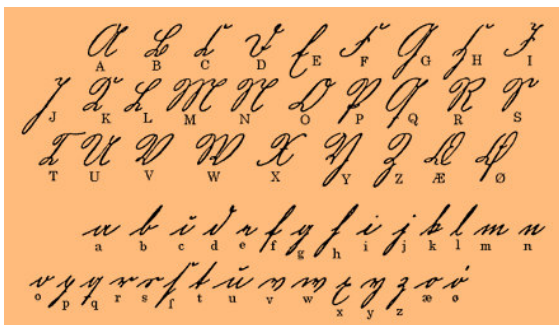 A B C D E F G H I
J K L M N O P Q R S
T U V W X Y Z Æ Ø
a b c d e f g h i j k l m n
o p q r s ſ t u v w x y z æ ø